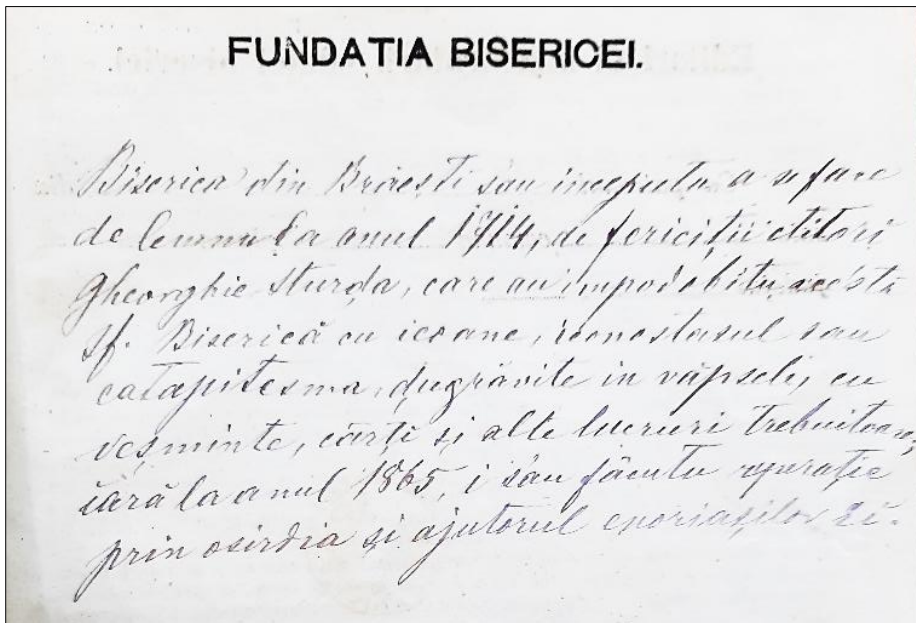 FUNDATIA BISERICEI.
Biserica din Brăești s'au inceputu a se face
de lemnu la anul 1714, de fericiții ctitori
Gheorghie Sturḑa, care au impodobitu acéstă
Sf. Biserică cu icoane, iconostasul sau
catapitesma, ḑugrăvite in văpseli, cu
veșminte, cărți și alte lucruri trebuitoare,
iară la anul 1865, i s'au făcutu reparație
prin osirdia și ajutorul enoriașilor ei.